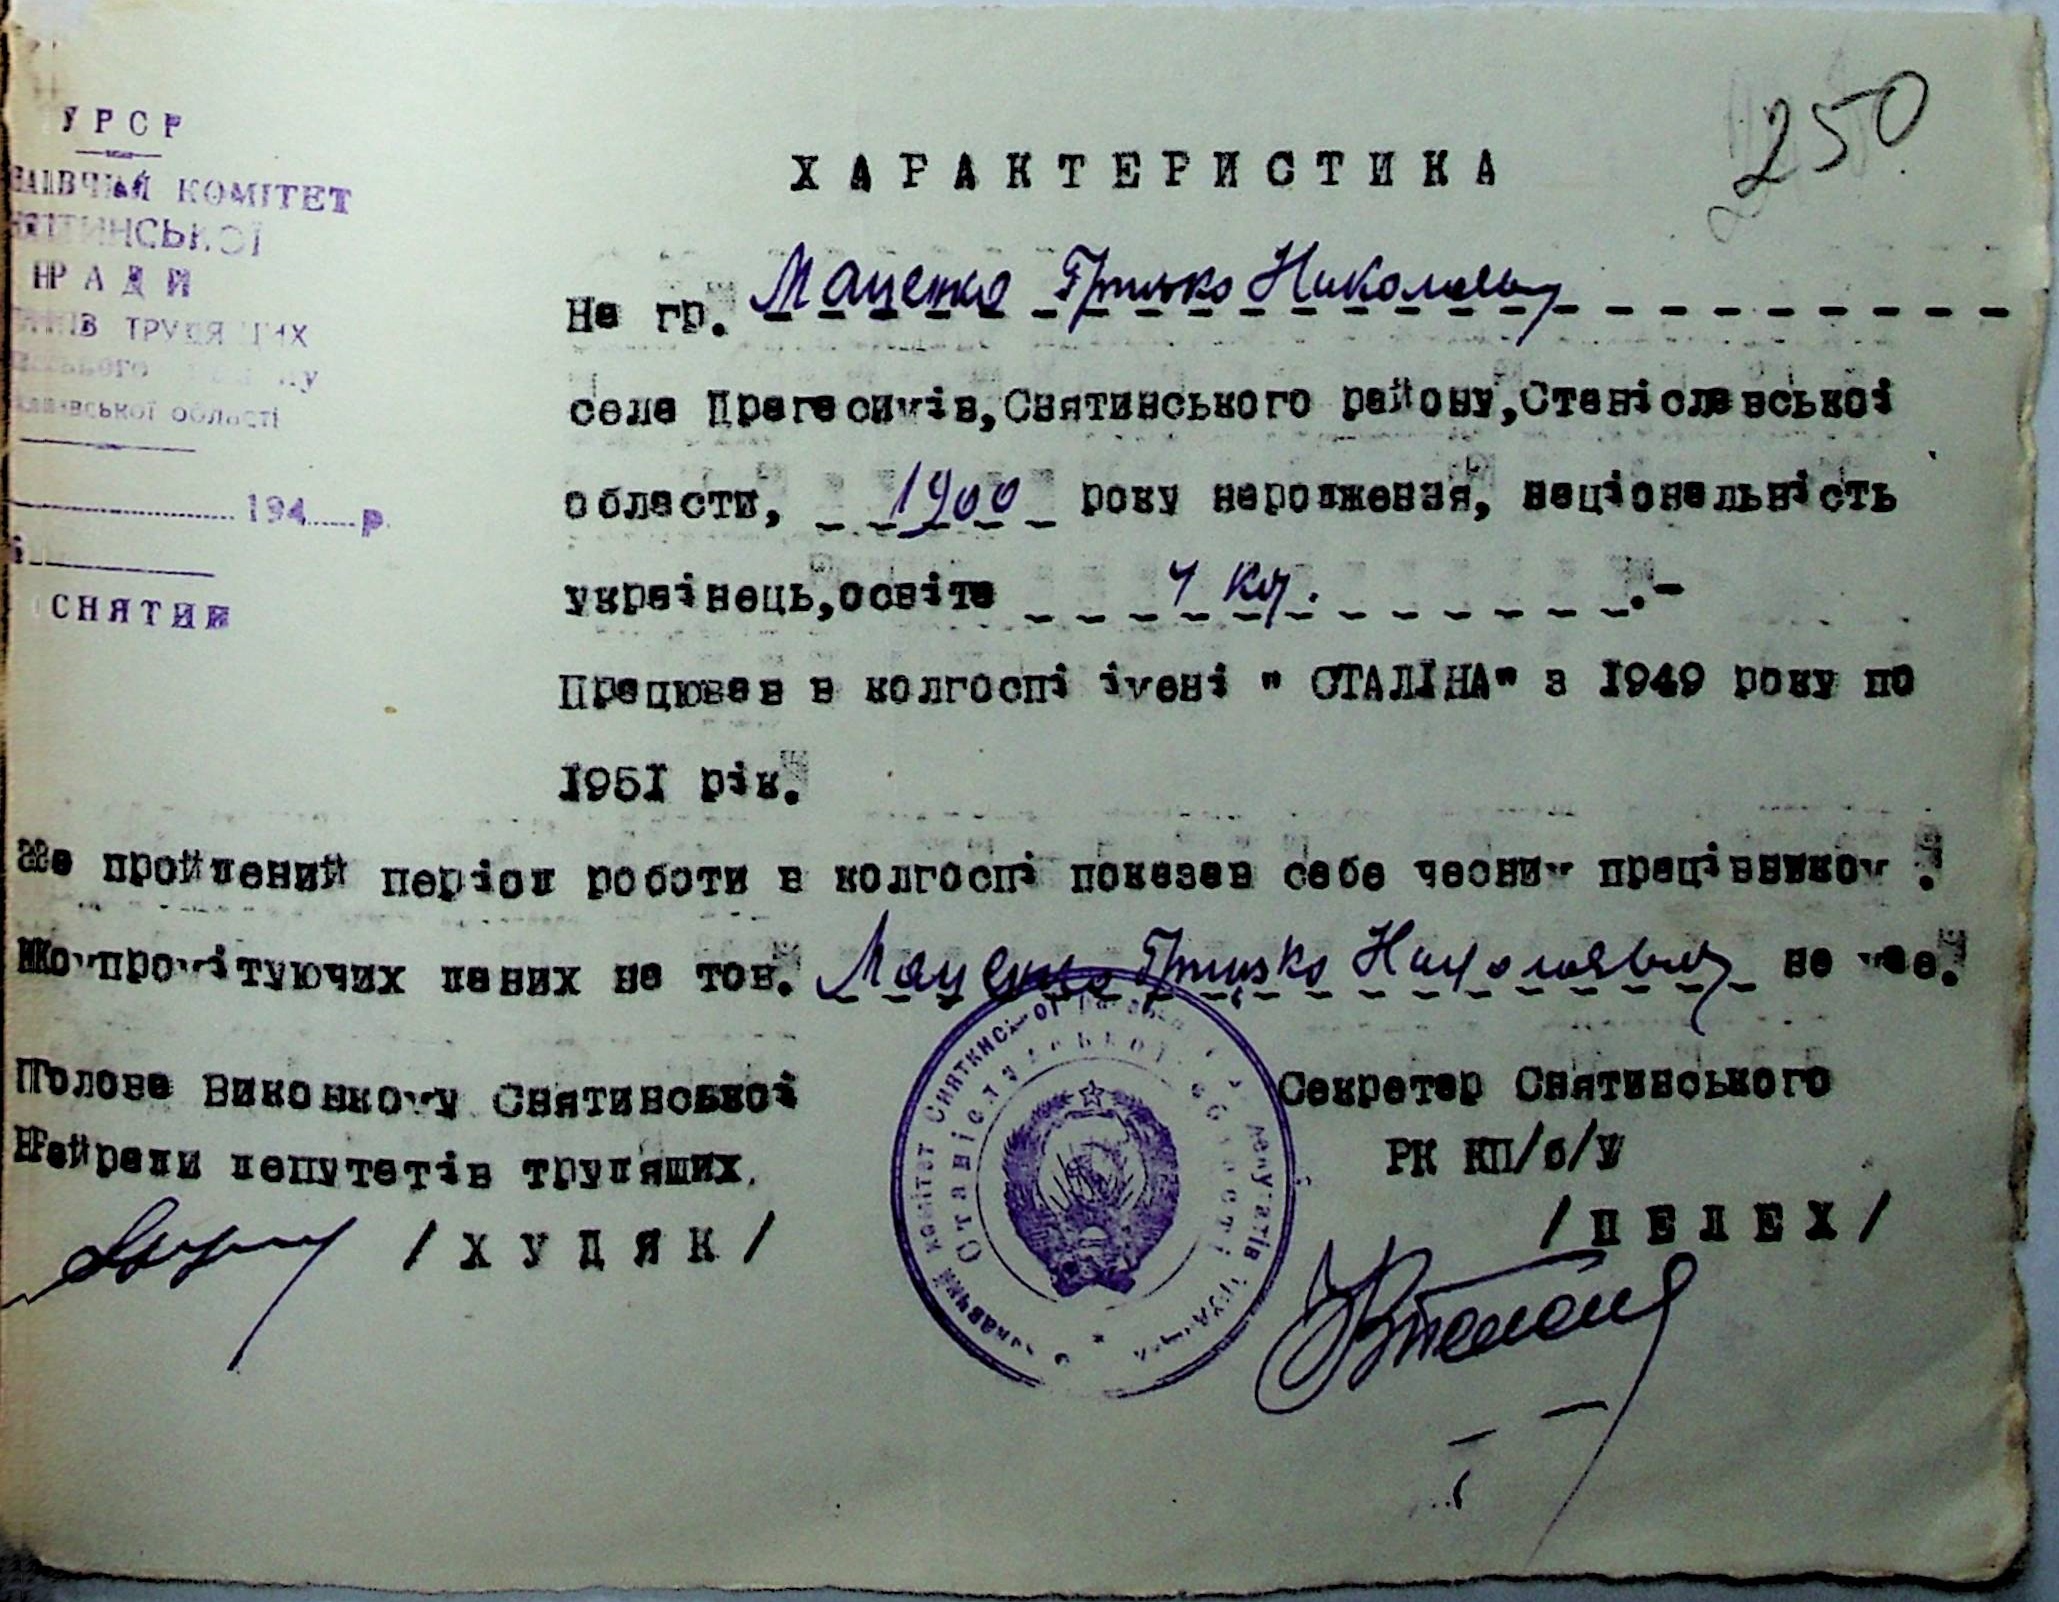 250
УРСР
КОМІТЕТ
РАДИ
194 р.
СНЯТИН
ХАРАКТЕРИСТИКА
На гр. Маценко Грицько Николаевич
села Драгасимів, Снятинського району, Станіславської
области, 1900 року народження, національність
українець, освіта 4 кл. .-
Працював в колгоспі імені " СТАЛІНА" з 1949 року по
1951 рік.
За пройдений період роботи в колгоспі показав себе чесним працівником .
Компромітуючих даних на тов. Маценко Грицько Николаевич не має.
Голова Виконкому Снятинської
Райради депутатів трудящих.
/ХУДЯК/
Секретар Снятинського
РК КП/б/У
/ПЕЛЕХ/
комітет Снятинської депутатів
Станіславської області